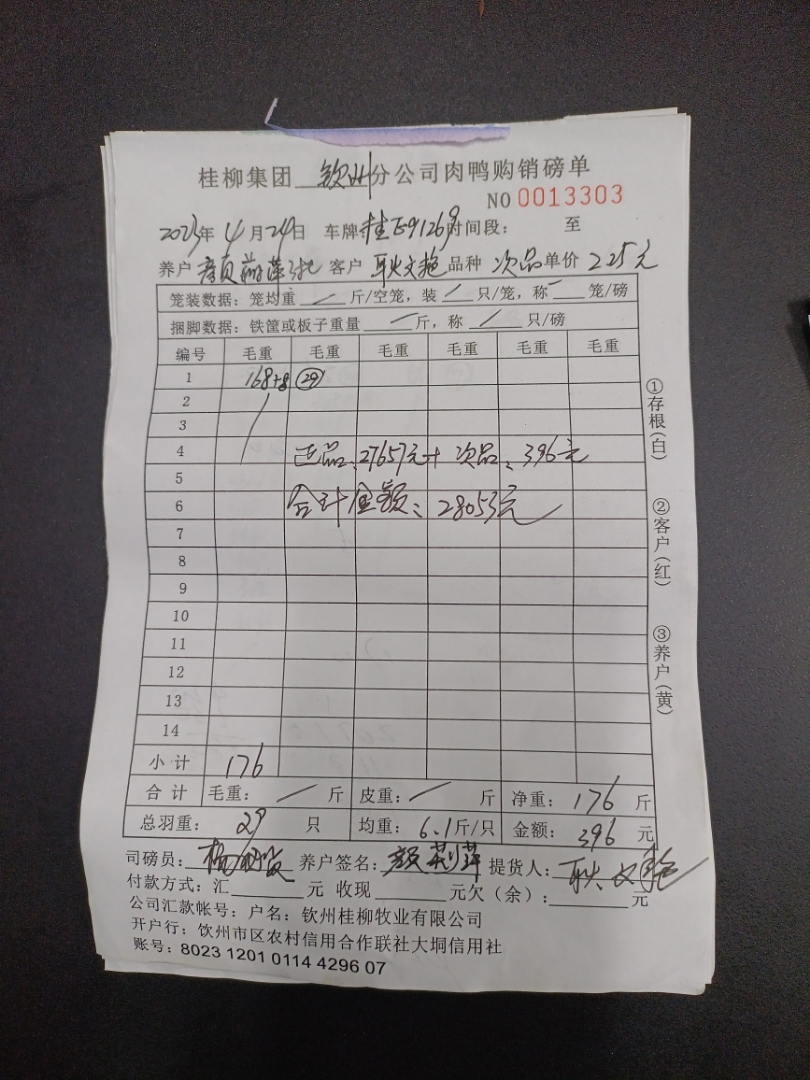 桂柳集团 钦州 分公司肉鸭购销磅单
NO 0013303
2023年 4月24日 车牌 桂E91269 时间段： 至
养户 客户 耿文艳 品种 次品 单价 2.25元
笼装数据：笼均重 / 斤/空笼，装 / 只/笼，称 / 笼/磅
捆脚数据：铁筐或板子重量 / 斤，称 / 只/磅
编号 毛重 毛重 毛重 毛重 毛重 毛重
1 168+8 29
2
3
4 正品：27657元+ 次品：396元
5
6 合计金额：28053元
7
8
9
10
11
12
13
14
小计 176
合计 毛重： / 斤 皮重： / 斤 净重：176 斤
总羽重： 29 只 均重：6.1斤/只 金额：396 元
司磅员： 养户签名： 提货人：耿文艳
付款方式：汇 元 收现 元欠（余）： 元
公司汇款帐号：户名：钦州桂柳牧业有限公司
开户行：钦州市区农村信用合作联社大垌信用社
账号：8023 1201 0114 4296 07
①存根（白）
②客户（红）
③养户（黄）